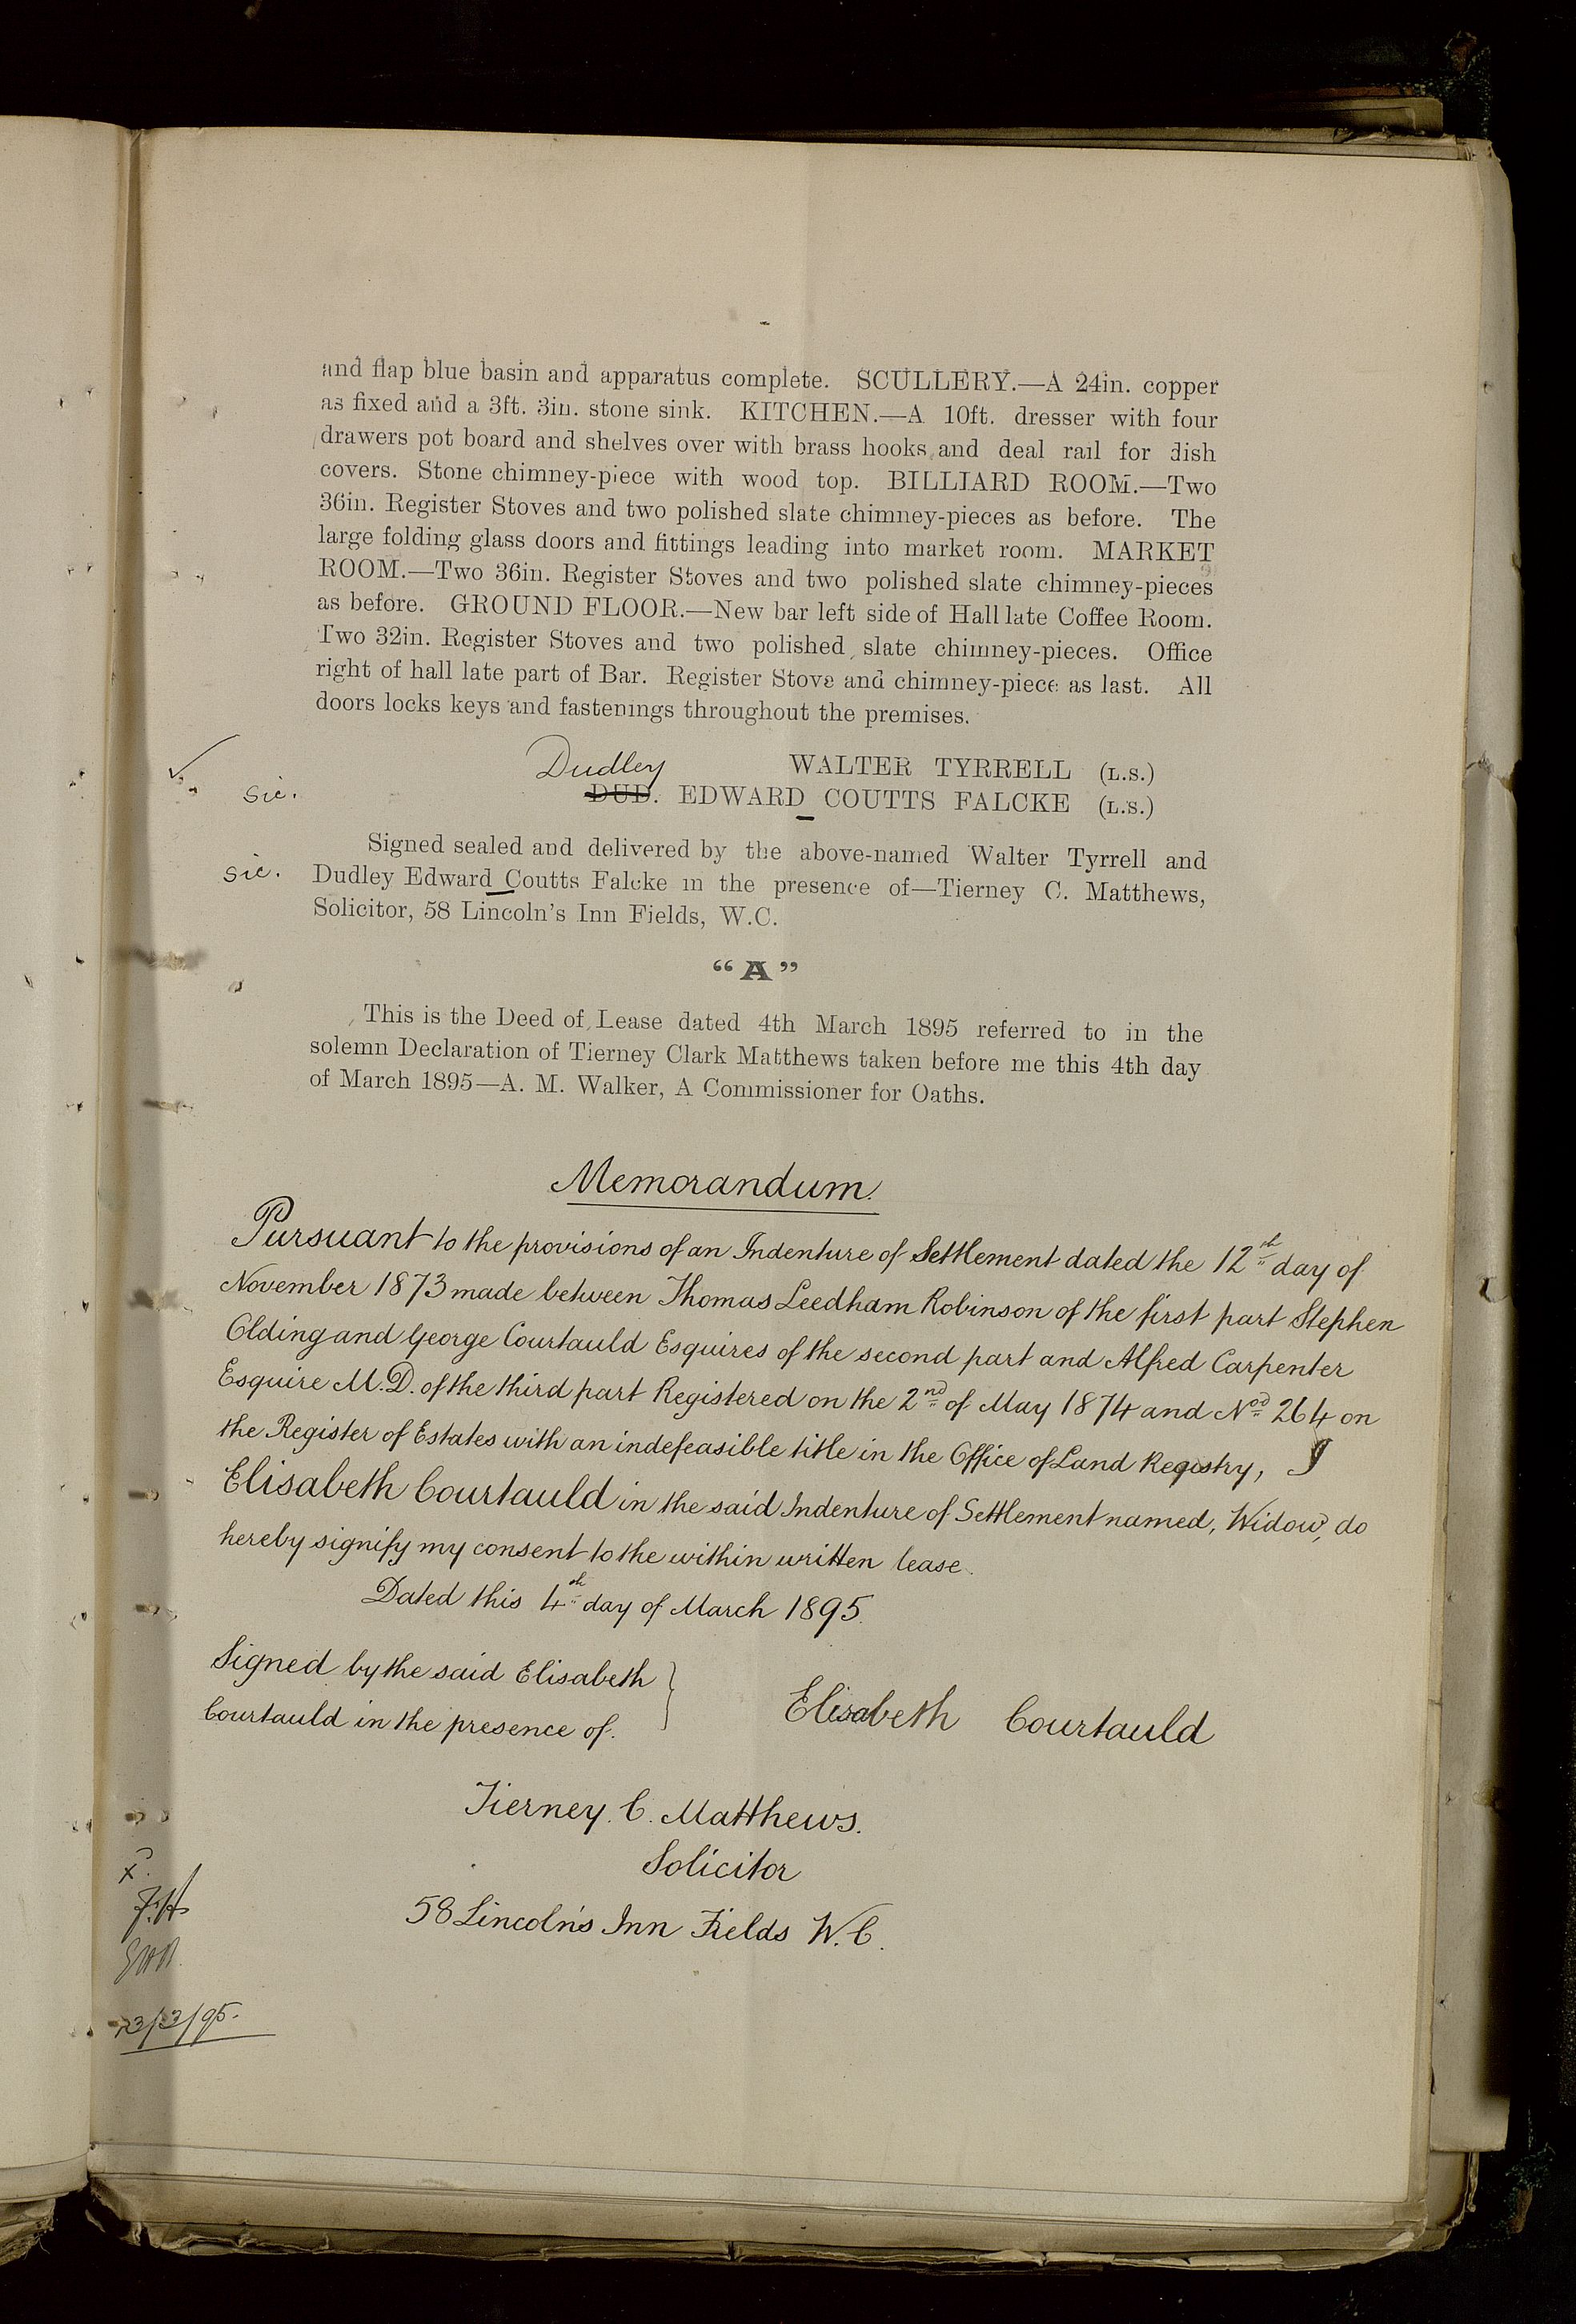 and flap blue basin and apparatus complete. SCULLERY.—A 24in. copper
as fixed and a 3ft. 3in. stone sink. KITCHEN.—A 10ft. dresser with four
drawers pot board and shelves over with brass hooks and deal rail for dish
covers. Stone chimney-piece with wood top. BILLIARD ROOM.—Two
36in. Register Stoves and two polished slate chimney-pieces as before. The
large folding glass doors and fittings leading into market room. MARKET
ROOM.—Two 36in. Register Stoves and two polished slate chimney-pieces
as before. GROUND FLOOR.—New bar left side of Hall late Coffee Room.
Two 32in. Register Stoves and two polished slate chimney-pieces. Office
right of hall late part of Bar. Register Stove and chimney-piece as last. All
doors locks keys and fastenings throughout the premises.
Dudley WALTER TYRRELL (L.S.)
sic. DUD. EDWARD COUTTS FALCKE (L.S.)
Signed sealed and delivered by the above-named Walter Tyrrell and
sic. Dudley Edward Coutts Falcke in the presence of—Tierney C. Matthews,
Solicitor, 58 Lincoln's Inn Fields, W.C.
"A"
This is the Deed of Lease dated 4th March 1895 referred to in the
solemn Declaration of Tierney Clark Matthews taken before me this 4th day
of March 1895—A. M. Walker, A Commissioner for Oaths.
Memorandum.
Pursuant to the provisions of an Indenture of Settlement dated the 12th day of
November 1873 made between Thomas Leedham Robinson of the first part Stephen
Olding and George Courtauld Esquires of the second part and Alfred Carpenter
Esquire M.D. of the third part Registered on the 2nd of May 1874 and Nod 264 on
the Register of Estates with an indefeasible title in the Office of Land Registry, I
Elisabeth Courtauld in the said Indenture of Settlement named, Widow, do
hereby signify my consent to the within written lease.
Dated this 4th day of March 1895.
Signed by the said Elisabeth
Courtauld in the presence of.
Elisabeth Courtauld
Tierney. C. Matthews.
Solicitor
58 Lincoln's Inn Fields W.C.
x
F.H
23/3/95.